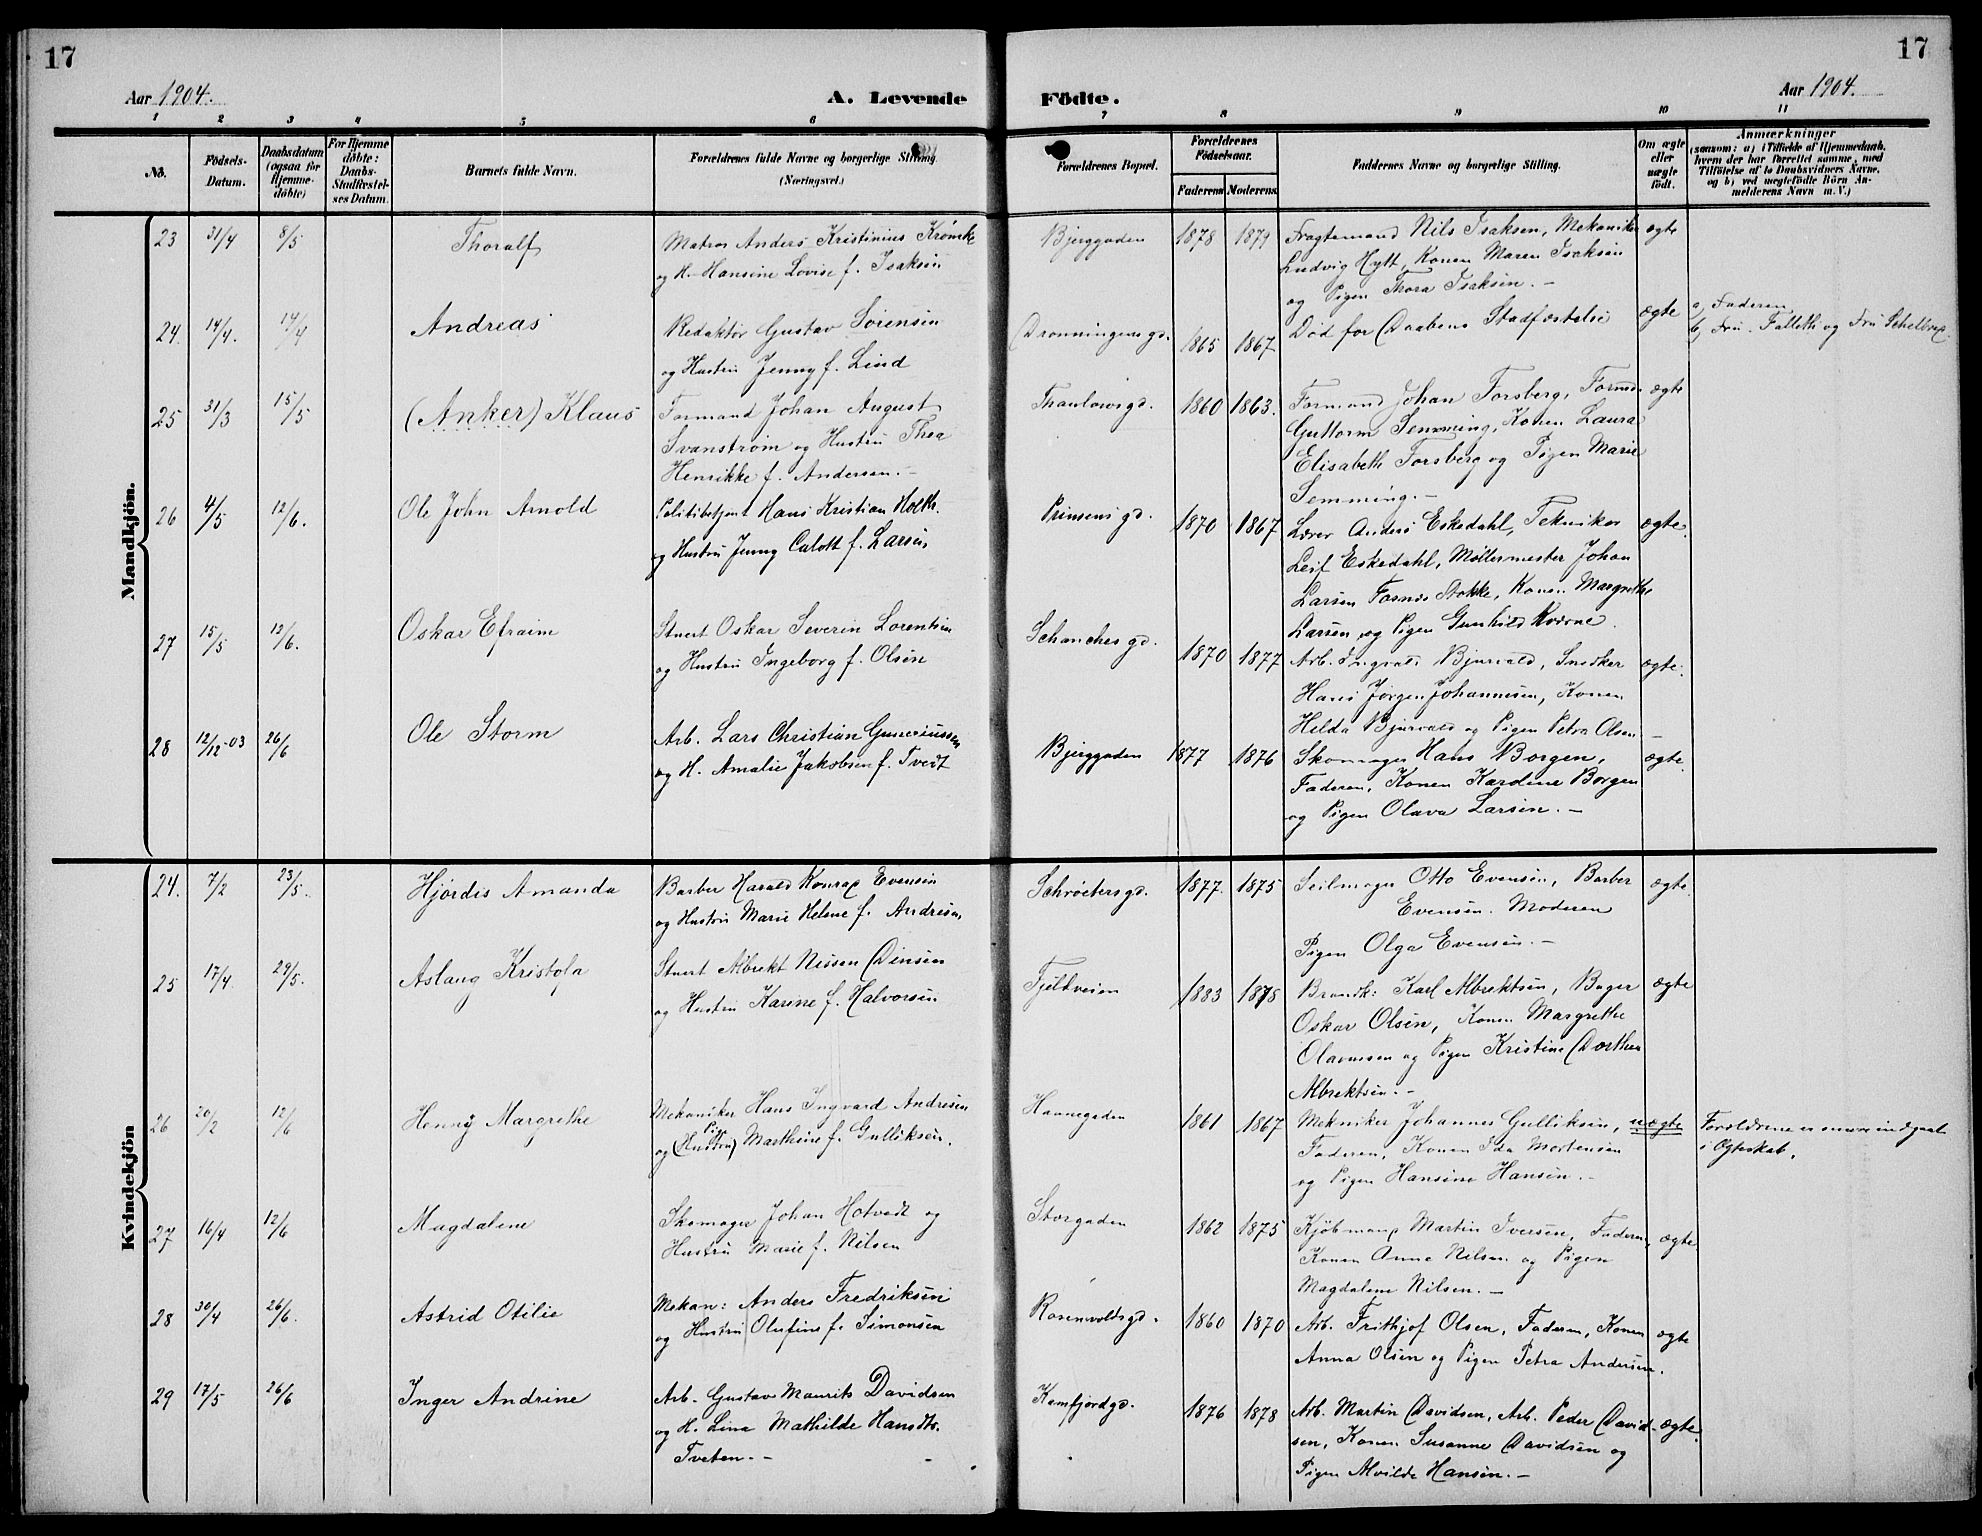 17
17
Aar 1904.
A. Levende
Födte.
Aar 1904.
1 2 3 4 5 6 7 8 9 10 11
No.
Födsels-
Datum.
Daabsdatum
(ogsaa for
Hjemme-
döbte)
For Hjemme
döbte:
Daabs-
Stadfæstel-
ses Datum.
Barnets fulde Navn.
Forældrenes fulde Navne og borgerlige Stilling
(Næringsvei.)
Forældrenes Bopæl.
Forældrenes
Födselsaar.
Faderens Moderens
Faddernes Navne og borgerlige Stilling.
Om ægte
eller
uægte
födt.
Anmærkninger
(saasom: a) i Tilfælde af Hjemmedaab,
hvem der har forrettet samme, med
Tilföielse af to Daabsvidners Navne,
og b) ved uægtefödte Börn An-
melderens Navn m. V.)
Mandkjön.
23 31/4 8/5 Thoralf
Matros Anders Kristinius
og H. Hansine Lovise f. Isaksen
Bjerggaden 1878 1879
Fragtemand Nils Isaksen, Mekaniker
Ludvig Hytt, Konen Maren Isaksen
og Pigen Thora Isaksen. -
ægte
24. 14/4. 14/4 Andreas
Redaktør Gustav Sørensen
og Hustru Jenny f. Lind
Dronningensgd. 1865 1867
Død før Daabens Stadfæstelse
ægte
a, Faderen
b, Fru Falleth og Fru
25 31/3 15/5 (Anker) Klaus
Formand Johan August
Svanstrøm og Hustru Thea
Henrikke f. Andersen. -
Thaulowsgd. 1860 1863.
Formand Johan Forsberg, Formd.
Guttorm Semming, Konen Laura
Elisabeth Forsberg og Pigen Marie
Semming. -
ægte
26 4/5 12/6. Ole John Arnold
Politibetjent Hans Kristian Holth.
og Hustru Jenny Calott f. Larsen,
Prinsensgd. 1870 1867
Lærer Anders Eskedahl, Tekniker
Leif Eskedahl, Møllermester Johan
Larsen Fosnes Stokke, Konen Margrethe
Larsen, og Pigen Gunhild Kværne.
ægte.
27 15/5 12/6. Oskar Efraim
Stuert Oskar Severin Lorentsen
og Hustru Ingeborg f. Olsen
Schanchesgd. 1870 1877
Arb. Ingvald Bjurvald, Snedker
Hans Jørgen Johannesen, Konen
Helda Bjurvald og Pigen Petra Olsen -
ægte.
28 12/12-03 26/6 Ole Storm
Arb. Lars Christian Guneriussen
og H. Amalie Jakobsen f. Tvedt
Bjerggaden 1877 1876
Skomager Hans Borgen,
Faderen, Konen Kardine Borgen
og Pigen Olava Larsen. -
ægte.
Kvindekjön
24. 7/2 23/5. Hjørdis Amanda
Barber Harald Konrad Evensen
og Hustru Marie Helene f. Andresen,
Schrøetersgd. 1877. 1875
Seilmager Otto Evensen, Barber
Evensen. Moderen
Pigen Olga Evensen. -
ægte.
25 17/4 29/5. Aslaug Kristofa
Stuert Albrekt Nissen Dinsen
og Hustru Karine f. Halvorsen
Fjeldveien 1883 1878
Brandk: Karl Albrektsen, Bager
Oskar Olsen, Konen Margrethe
Olavesen og Pigen Kristine Dorthea
Albrektsen. -
ægte
26 20/2 12/6 Henny Margrethe
Mekaniker Hans Ingvard Andresen
Pige
og (Hustru) Marthine f. Gulliksen.
Havnegaden 1861 1867
Mekniker Johannes Gulliksen,
Faderen, Konen Ida Mortensen
og Pigen Hansine Hansen. -
uægte
Forældrene senere indgaat
i Ægteskab.
27 16/4 12/6 Magdalene
Skomager Johan Hotvedt og
Hustru Marie f. Nilsen
Storgaden 1862 1875
Kjøbmand Martin Iversen, Faderen,
Konen Anne Nilsen og Pigen
Magdalene Nilsen. -
ægte
28 30/4 26/6. Astrid Otilie
Mekan: Anders Fredriksen
og Hustru Olufine f. Simonsen
Rosenvoldsgd. 1860 1870
Arb. Frithjof Olsen, Faderen, Konen
Anna Olsen og Pigen Petra Andersen.
ægte
29 17/5 26/6 Inger Andrine
Arb. Gustav Maurits Davidsen
og H. Lina Mathilde Hansdtr.
Tveten. -
Kamfjordgd. 1876 1878
Arb. Martin Davidsen, Arb. Peder David-
sen, Konen Susanne Davidsen og
Pigen Alvilde Hansen. -
ægte.